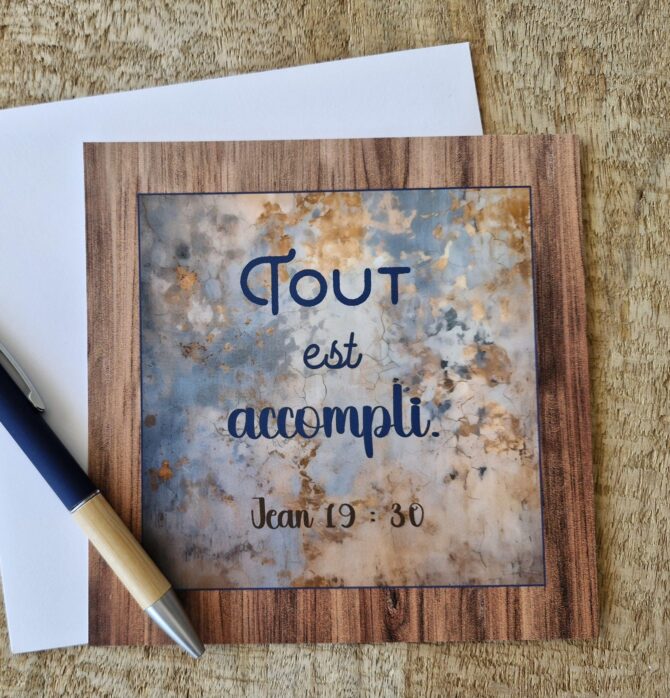 Tout
est
accompli.
Jean 19 : 30